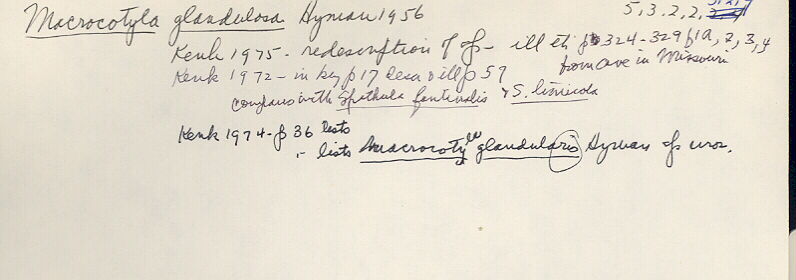 Macrocotyla glandulosa Hyman 1956 5, 3, 2, 2,
Kenk 1975 - redescription of sp - ill p 324-329 f 1a, 2, 3, 4
from cave in Missouri
Kenk 1972 - in key p 17 desc & ill p 59
compares with Spathula fontinalis & S. limicola
Kenk 1974 - p 36 lists
- lists Macrocotyla glandularis Hyman